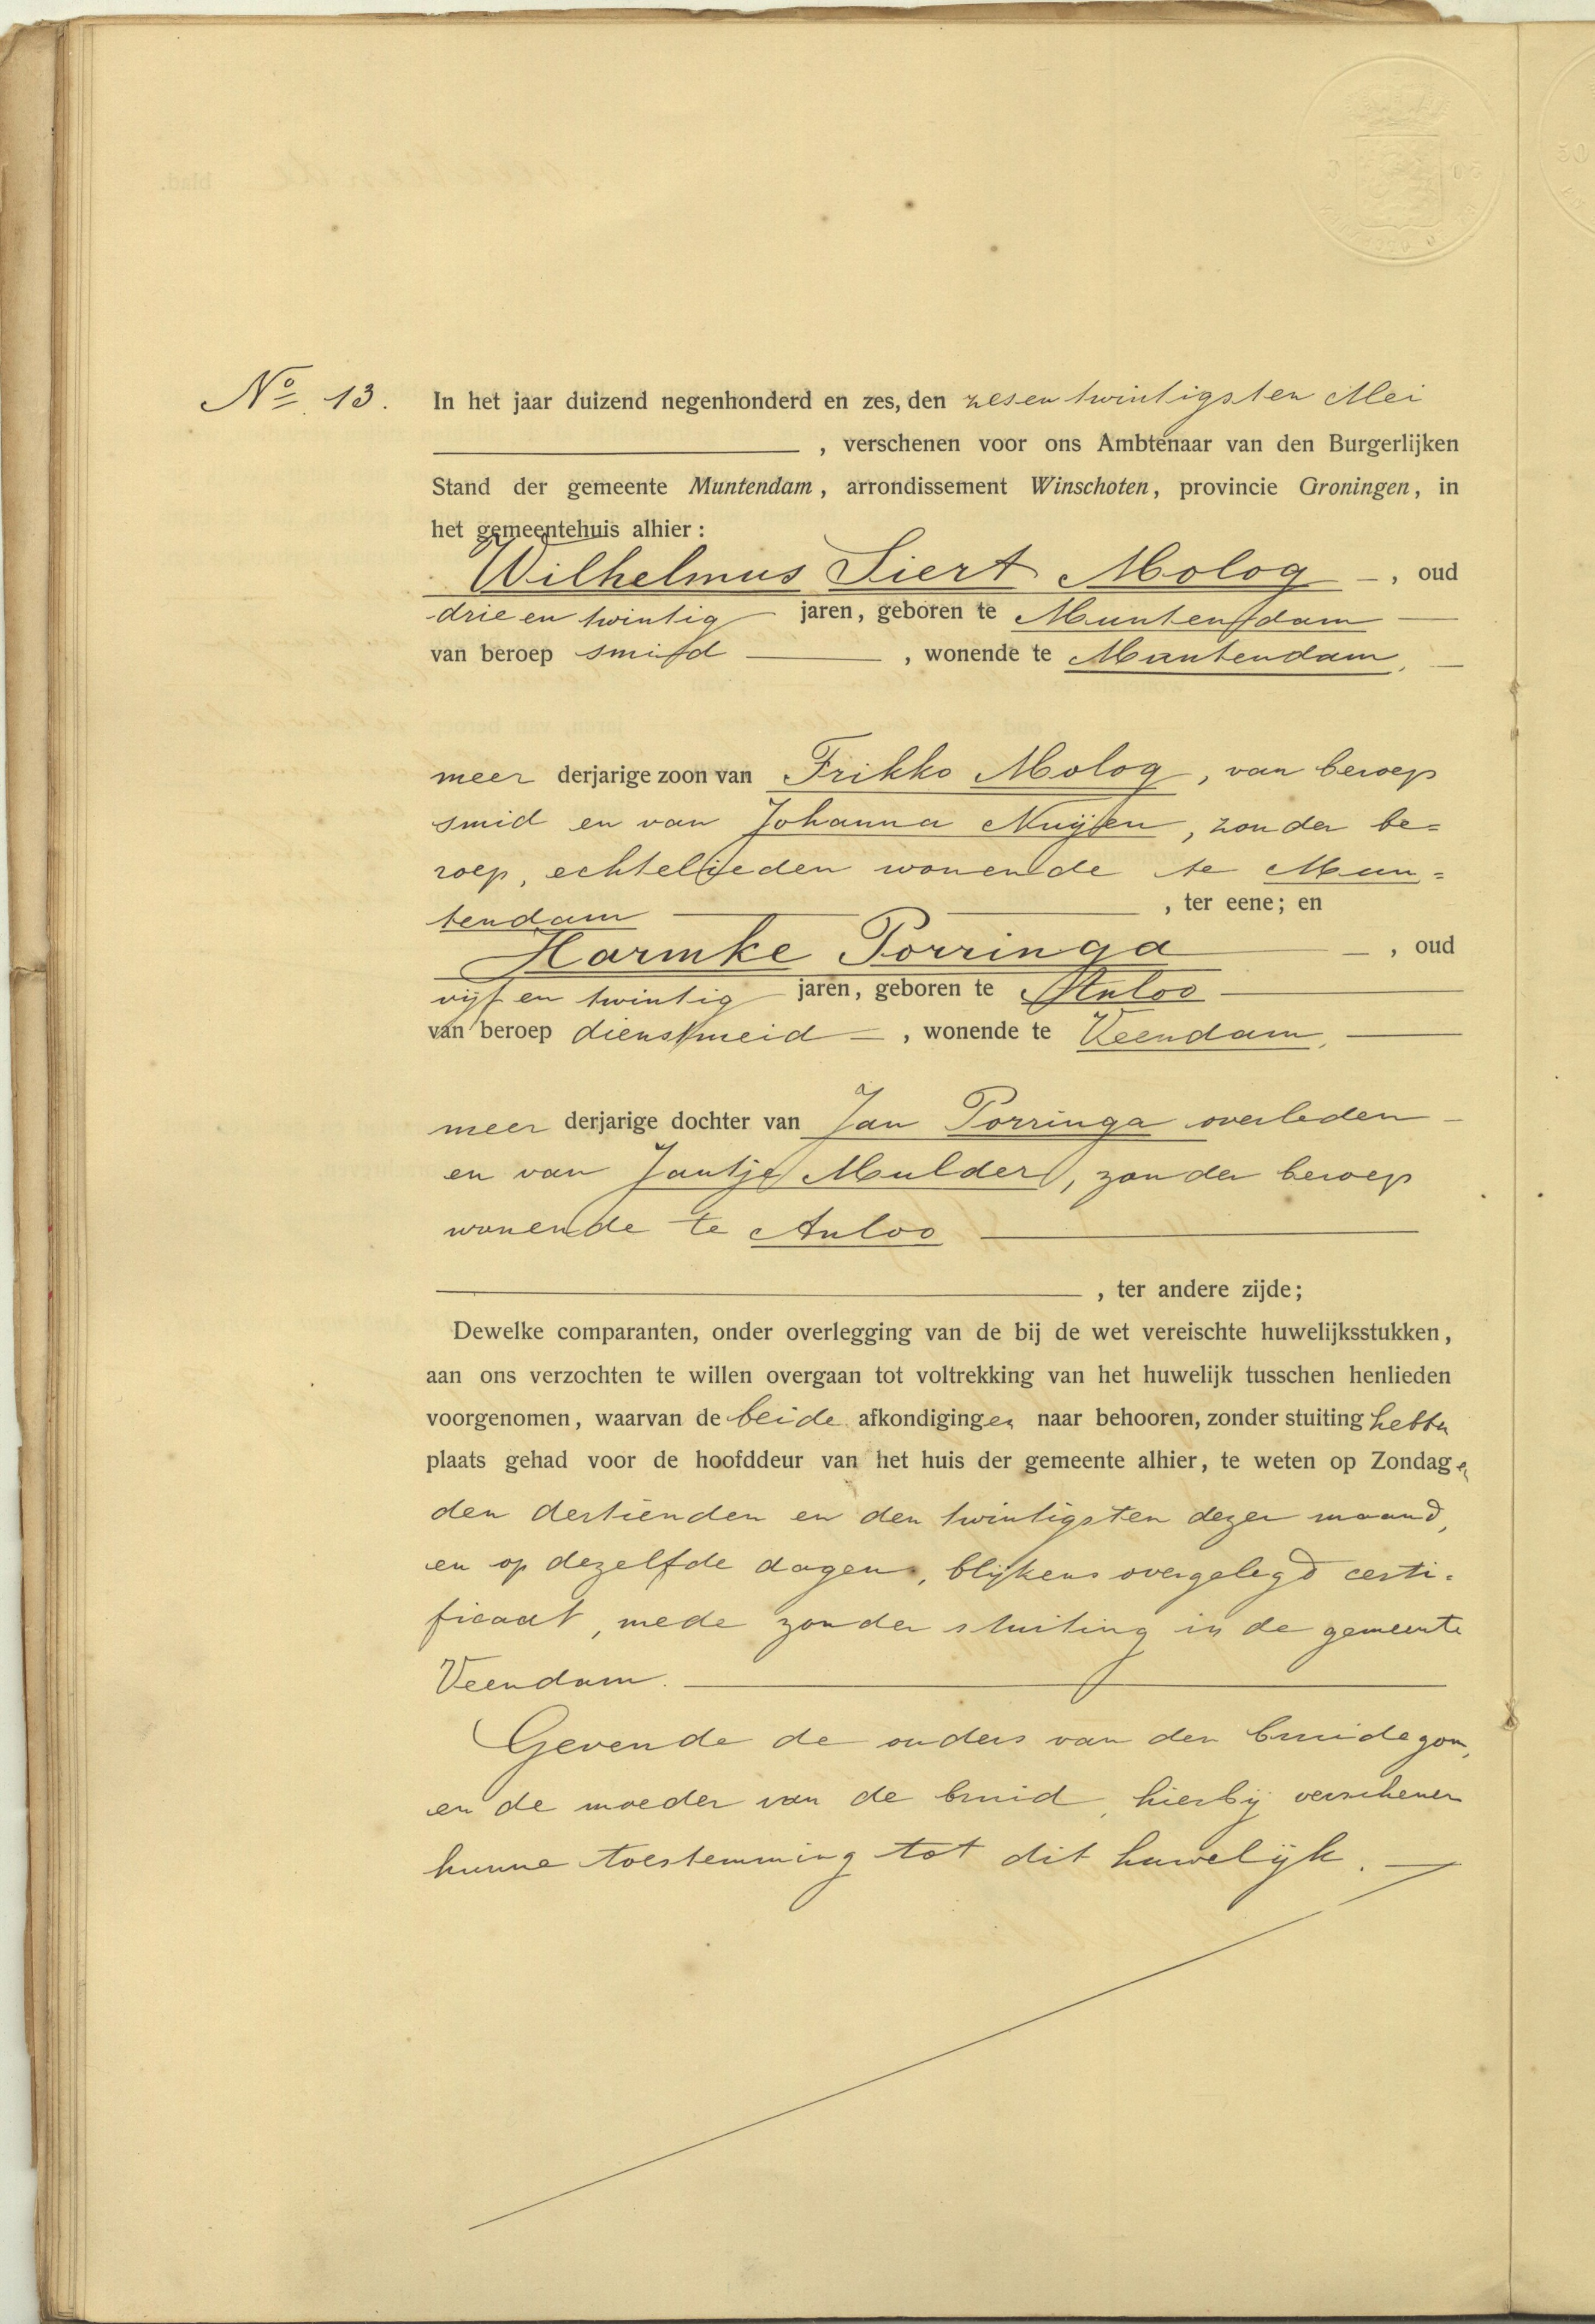 No. 13. In het jaar duizend negenhonderd en zes, den zesentwintigsten Mei
, verschenen voor ons Ambtenaar van den Burgerlijken
Stand der gemeente Muntendam, arrondissement Winschoten, provincie Groningen, in
het gemeentehuis alhier:
Wilhelmus Siert Molog, oud
drie en twintig jaren, geboren te Muntendam
van beroep smid, wonende te Muntendam,
meerderjarige zoon van Frikko Molog, van beroep
smid en van Johanna Nuijen, zonder be=
roep, echtelieden wonende te Mun=
tendam, ter eene; en
Harmke Porringa, oud
vijf en twintig jaren, geboren te Anloo
van beroep dienstmeid, wonende te Veendam,
meerderjarige dochter van Jan Porringa overleden
en van Jantje Mulder, zonder beroep
wonende te Anloo
, ter andere zijde;
Dewelke comparanten, onder overlegging van de bij de wet vereischte huwelijksstukken,
aan ons verzochten te willen overgaan tot voltrekking van het huwelijk tusschen henlieden
voorgenomen, waarvan de beide afkondigingen naar behooren, zonder stuiting hebben
plaats gehad voor de hoofddeur van het huis der gemeente alhier, te weten op Zondagen
den dertienden en den twintigsten dezer maand,
en op dezelfde dagen, blijkens overgelegd certi=
ficaat, mede zonder stuiting in de gemeente
Veendam.
Gevende de ouders van den bruidegom,
en de moeder van de bruid, hierbij verschenen
hunne toestemming tot dit huwelijk.